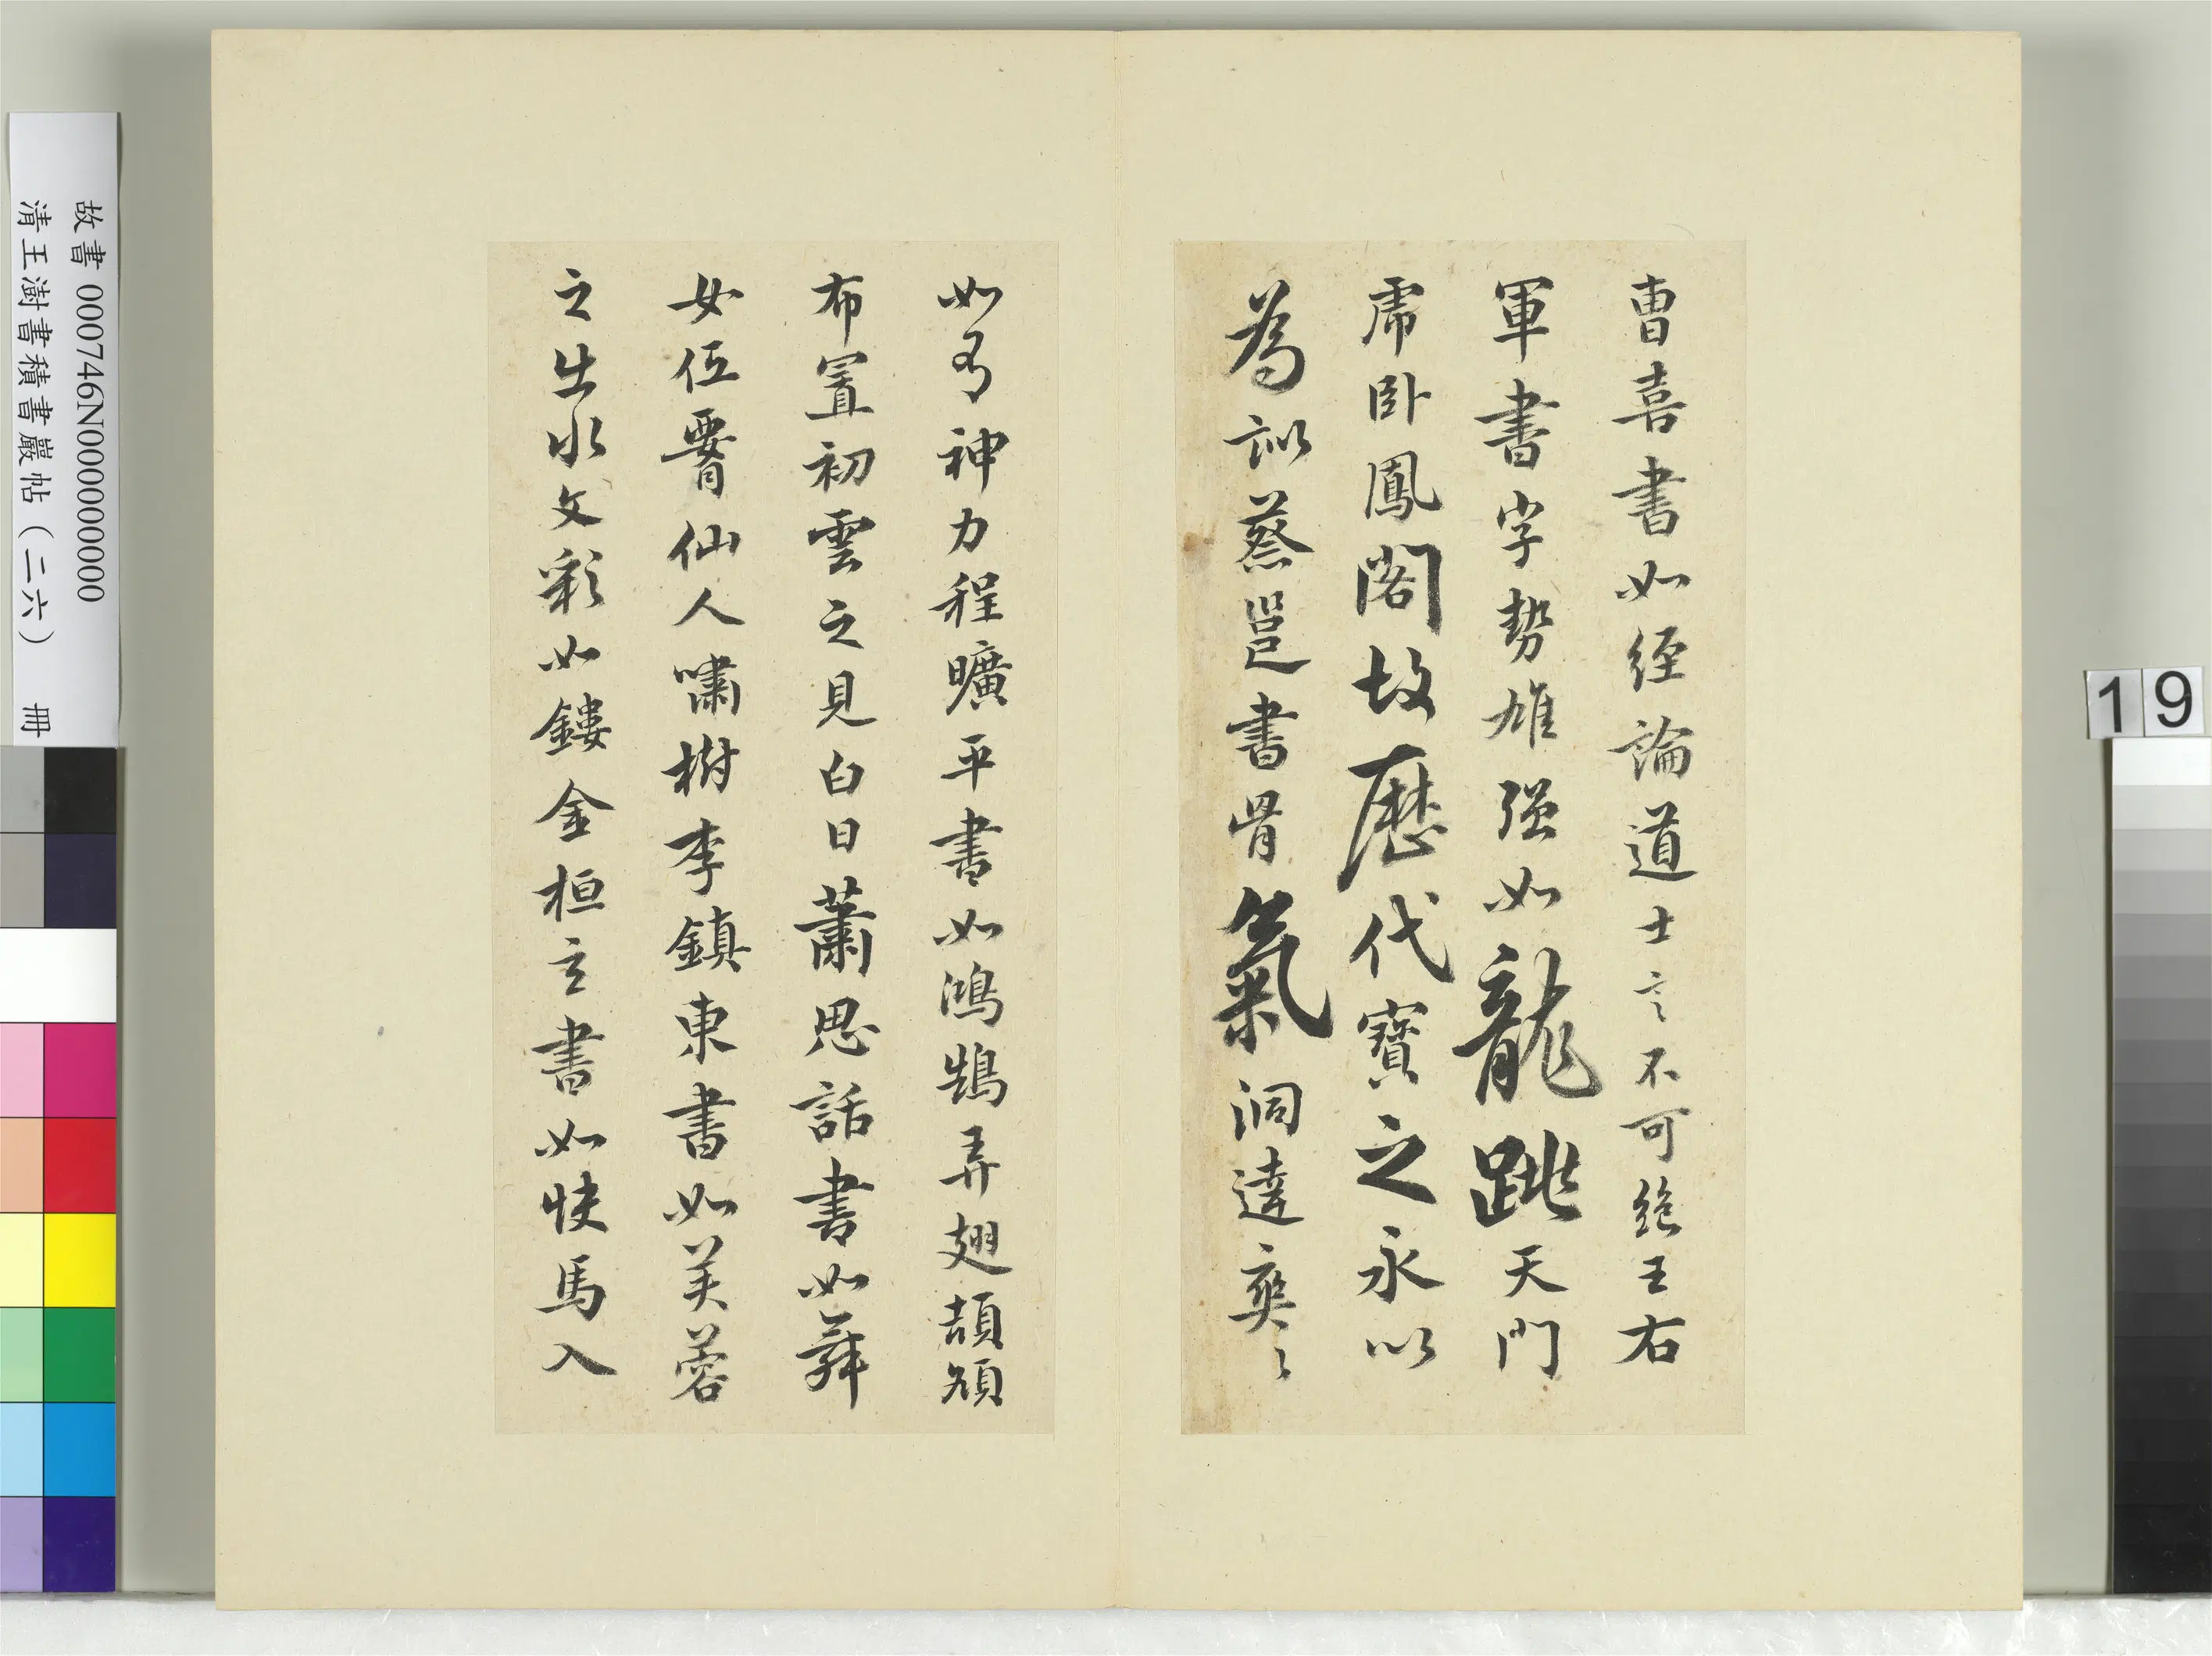 曹喜書如經論道士言不可絕王右
軍書字勢雄強如龍跳天門
虎臥鳳閣故歷代寶之永以
為訓蔡邕書骨氣洞達爽〻
如有神力程曠平書如鴻鵠弄翅頡頏
布置初雲之見白日蕭思話書如舞
女低腰仙人嘯樹李鎮東書如芙蓉
之出水文彩如鏤金桓玄書如快馬入
故書 000746N000000000
清王澍書積書巖帖(二六) 冊
19